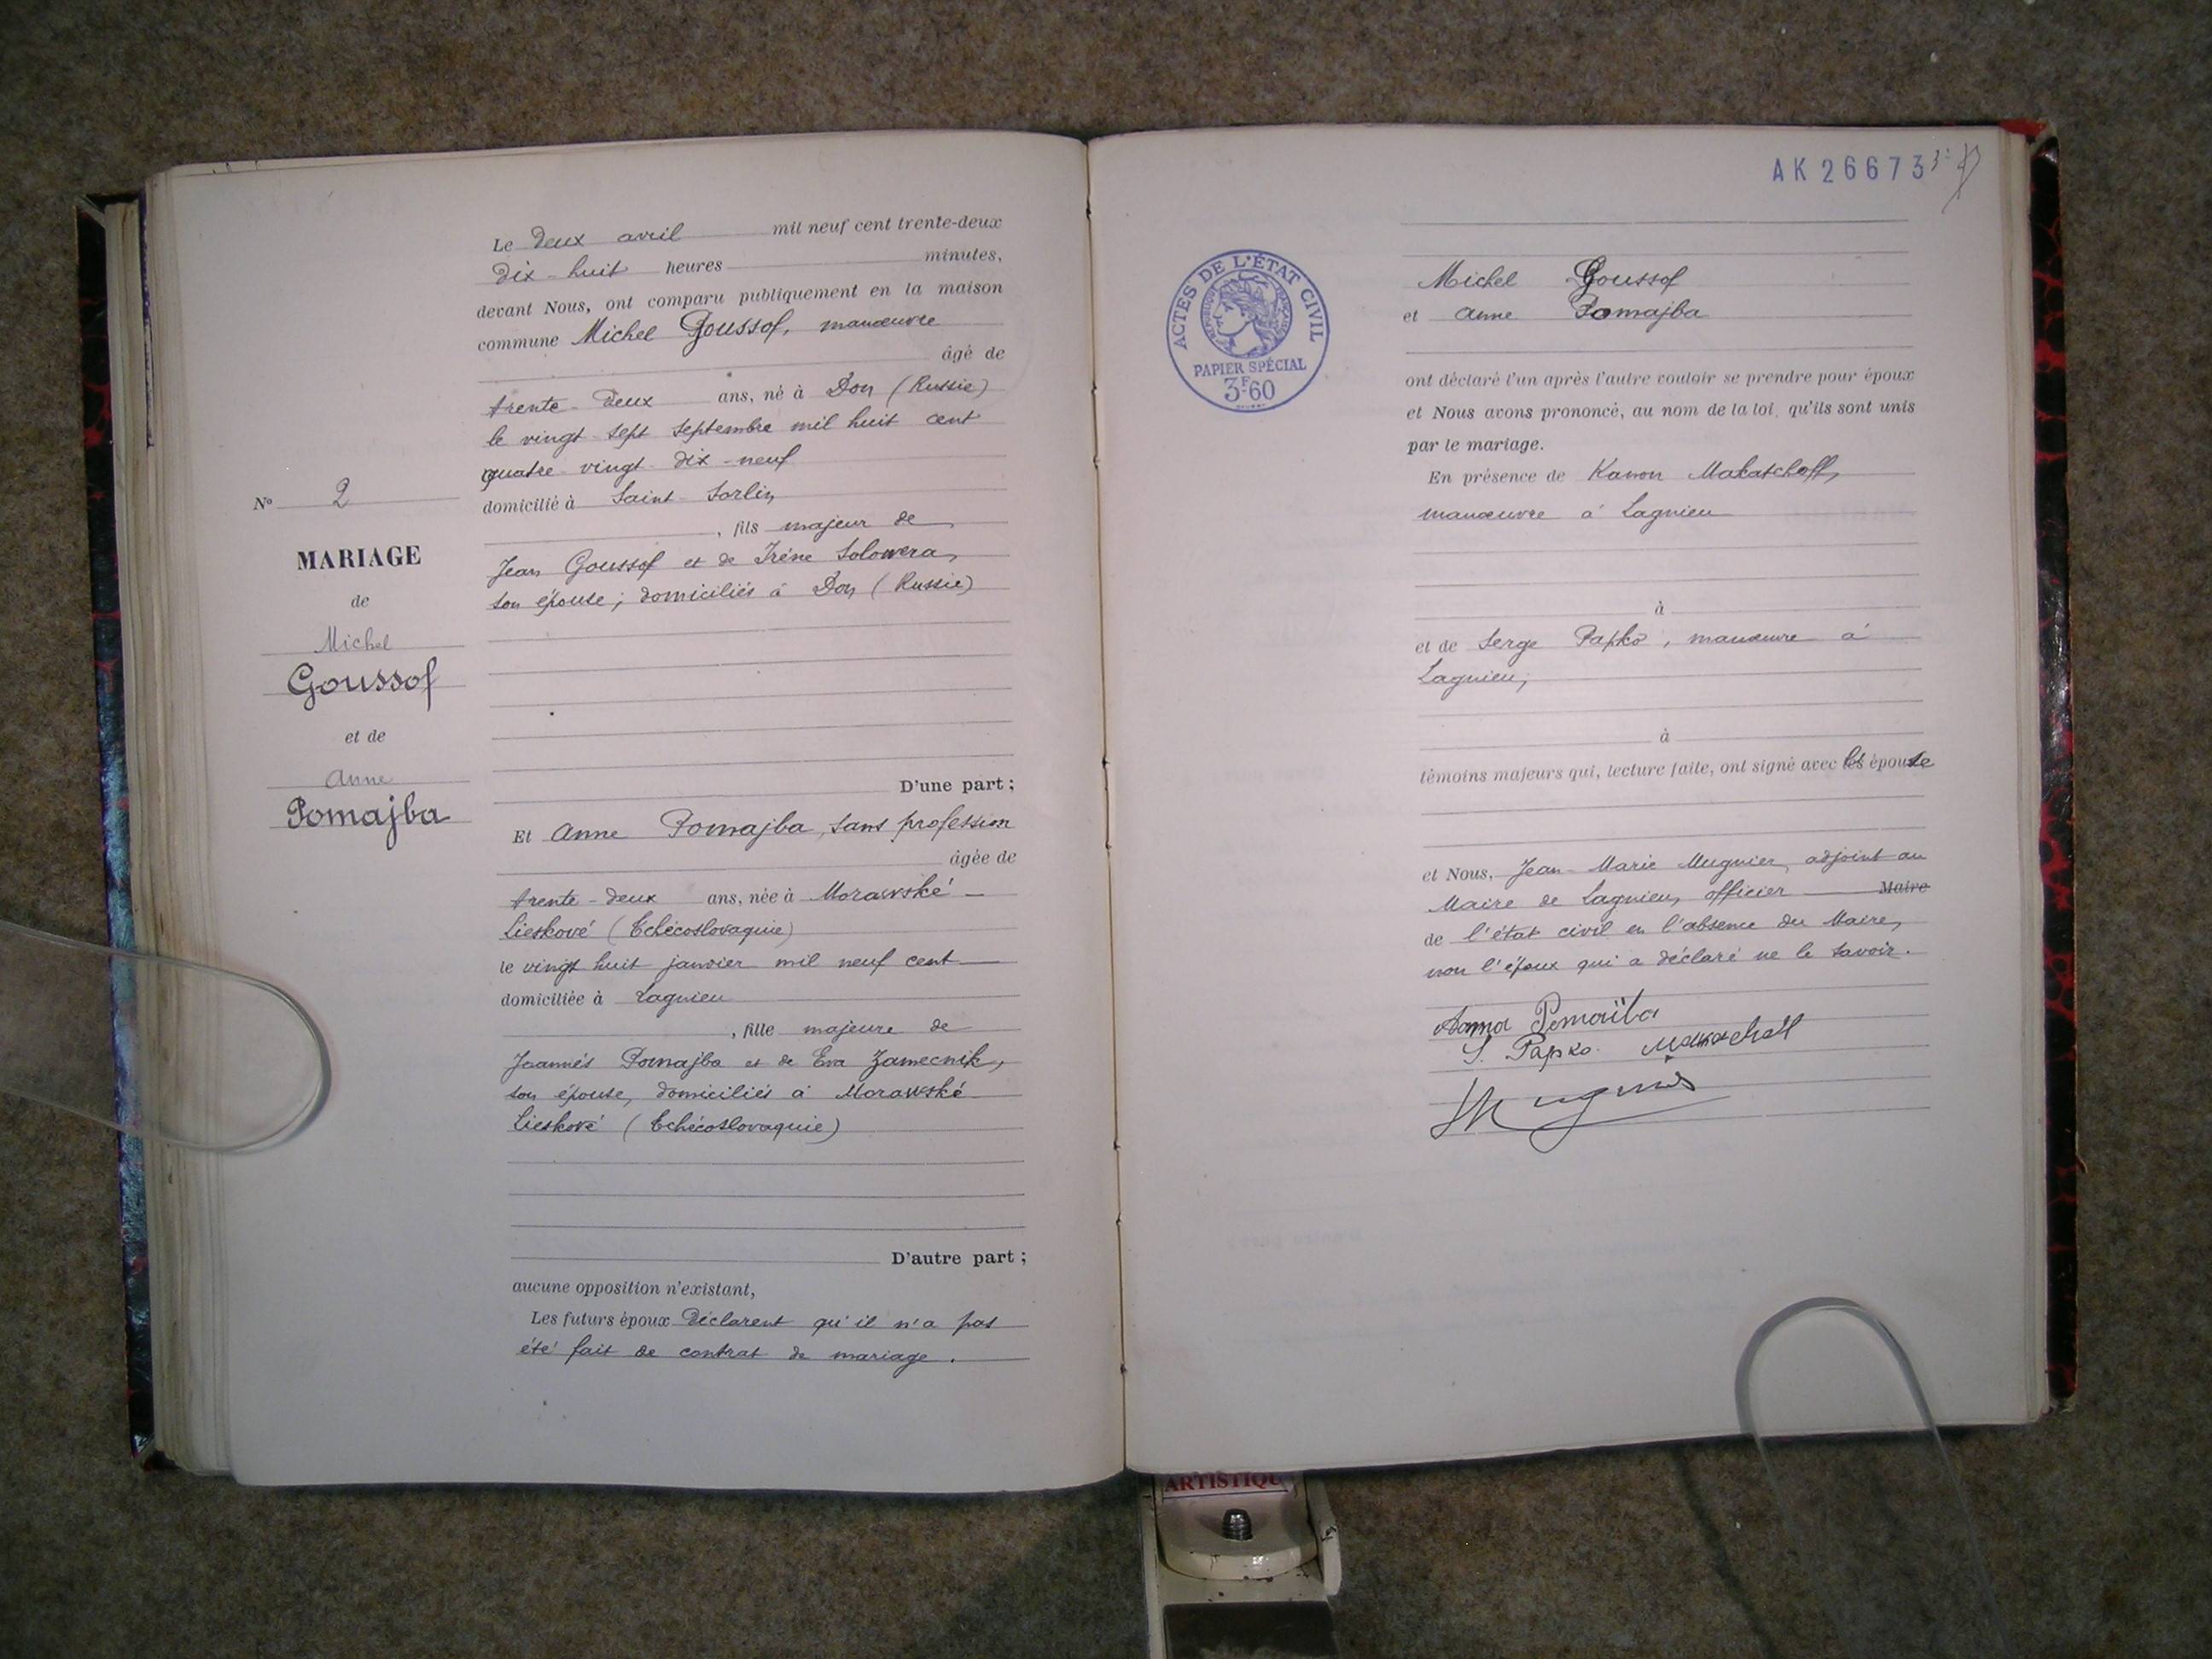 Le deux avril mil neuf cent trente-deux
dix-huit heures minutes,
devant Nous, ont comparu publiquement en la maison
commune Michel Goussof, manœuvre
âgé de
trente-deux ans, né à Don (Russie)
le vingt-sept septembre mil huit cent
quatre-vingt-dix-neuf
domicilié à Saint-Sorlin
, fils majeur de
Jean Goussof et de Irène Solowera,
son épouse; domiciliés à Don (Russie)
D'une part;
Et Anne Pomajba, sans profession
âgée de
trente-deux ans, née à Morawské-
Lieskové (Tchécoslovaquie)
le vingt huit janvier mil neuf cent
domiciliée à Lagnieu
, fille majeure de
Joannès Pomajba et de Eva Zamecnik,
son épouse, domiciliés à Morawské-
Lieskové (Tchécoslovaquie)
D'autre part;
aucune opposition n'existant,
Les futurs époux déclarent qu'il n'a pas
été fait de contrat de mariage.
N° 2
MARIAGE
de
Michel
Goussof
et de
Anne
Pomajba
AK 26673
ACTES DE L'ÉTAT CIVIL
RÉPUBLIQUE FRANÇAISE
PAPIER SPÉCIAL
3F60
Michel Goussof
et Anne Pomajba
ont déclaré l'un après l'autre vouloir se prendre pour époux
et Nous avons prononcé, au nom de la loi, qu'ils sont unis
par le mariage.
En présence de Kanon Makatchoff,
manœuvre à Lagnieu
à
et de Serge Papko, manœuvre à
Lagnieu,
à
témoins majeurs qui, lecture faite, ont signé avec l'épouse
et Nous, Jean-Marie Mugnier, adjoint au
Maire de Lagnieu, officier Maire
de l'état civil en l'absence du Maire,
non l'époux qui a déclaré ne le savoir.
Anna Pomaïba
S. Papko
Mugnier
ARTISTIQU